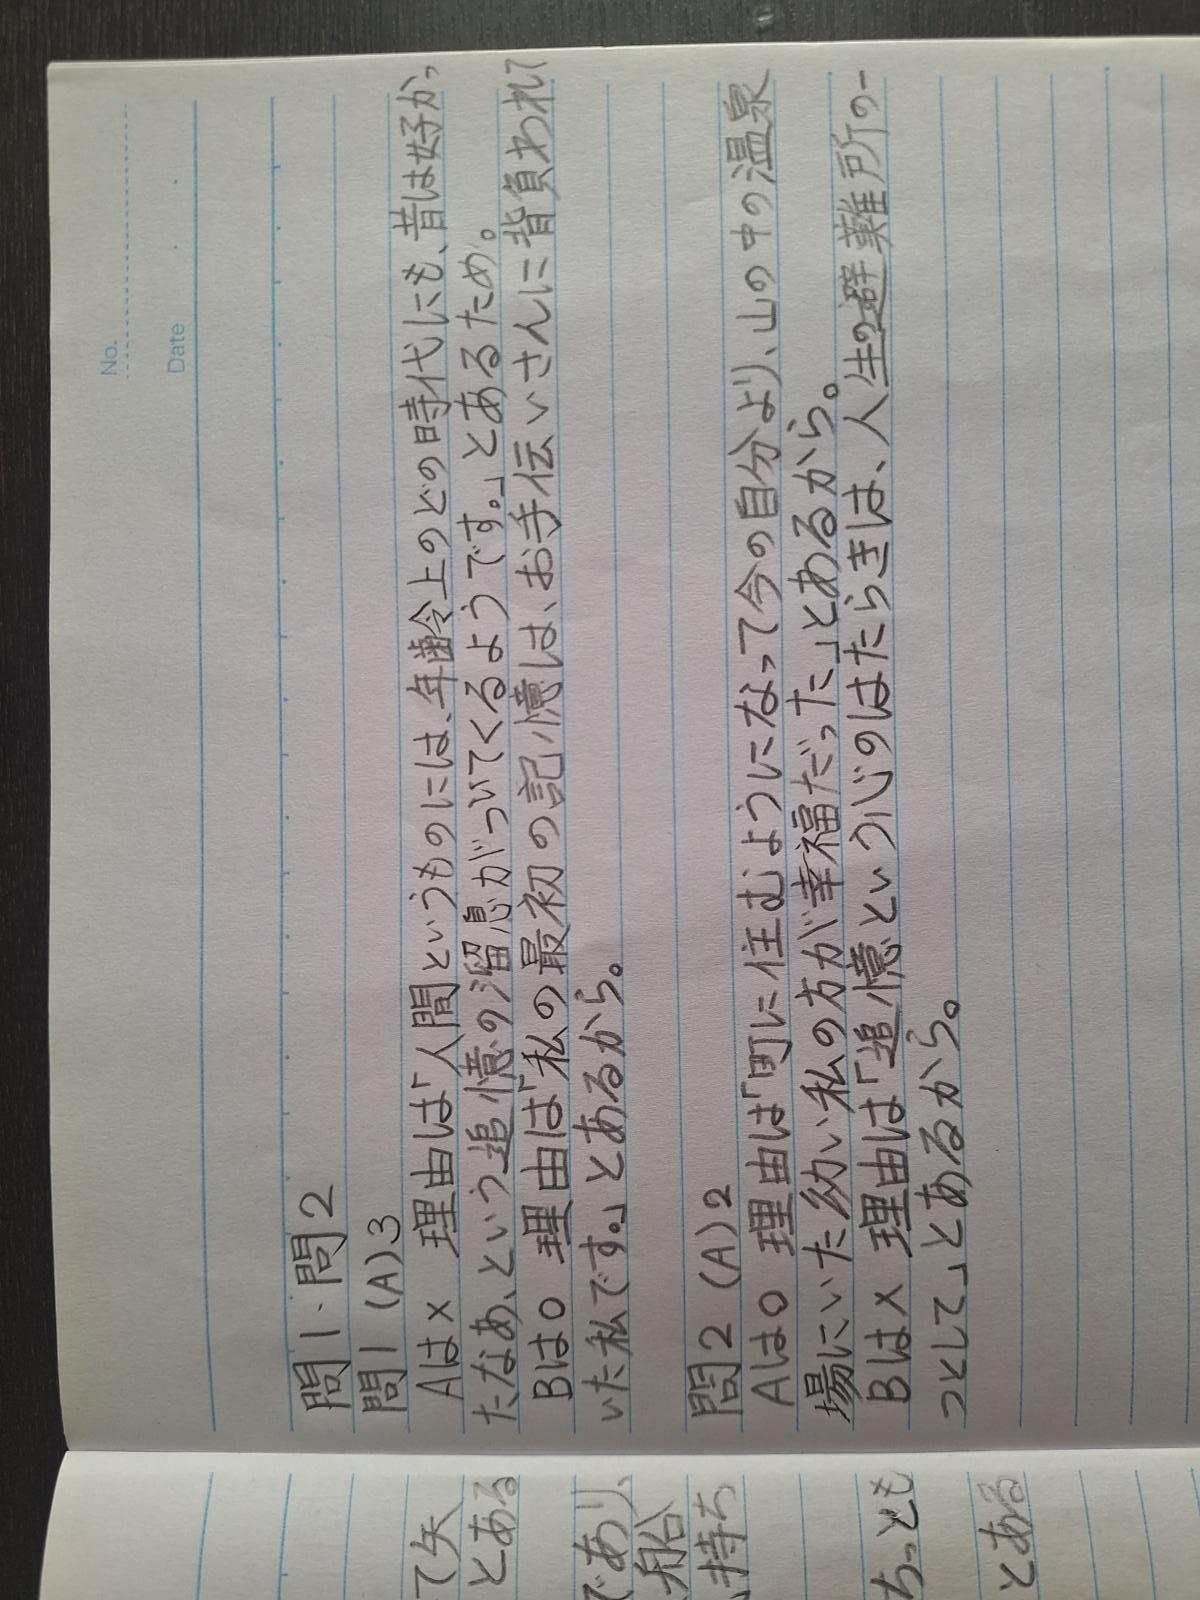 No.
Date
問1.問2
問1 (A)3
Aは× 理由は「人間というものには、年齢上のどの時代にも、昔は好かっ
たなあ、という追憶の溜息がついてくるようです。」とあるため。
Bは○ 理由は「私の最初の記憶は、お手伝いさんに背負われて
いた私です。」とあるから。
問2 (A)2
Aは○ 理由は「町に住むようになって今の自分より、山の中の温泉
場にいた幼い私の方が幸福だった」とあるから。
Bは× 理由は「追憶という心のはたらきは、人生の避難所の一
つとして」とあるから。
て矢
とある
であり、
船
持ち
ちっとも
とある